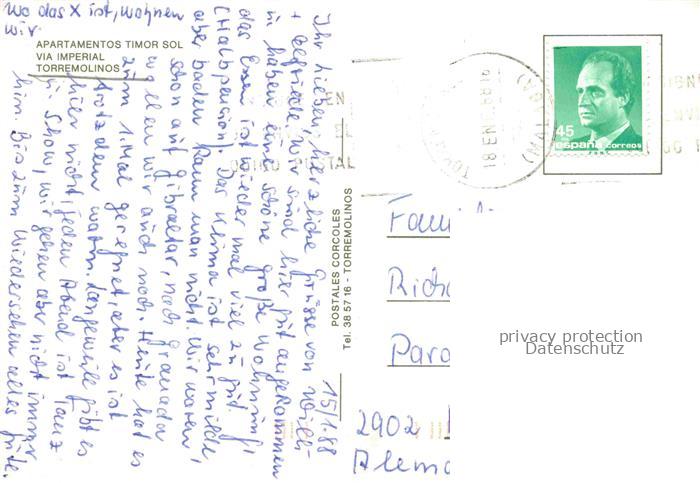 wo das X ist, wohnen
wir
APARTAMENTOS TIMOR SOL
VIA IMPERIAL
TORREMOLINOS
15/1.88
Ihr Lieben, herzliche Grüsse von Willi
+ Wir sind hier gut angekommen
u. haben eine schöne große Wohnung,
das Essen ist wieder mal viel zu gut.
(Halbpension). Das Klima ist sehr milde,
aber baden kann man nicht. Wir waren
schon auf Gibraltar, nach Granada
wollen wir auch noch. Heute hat es
zum 1. Mal geregnet, aber es ist
trotzdem warm. Langeweile gibt es
hier nicht, jeden Abend ist Tanz
u. Show, wir gehen aber nicht immer
hin. Bis zum Wiedersehen alles Gute.
POSTALES CORCOLES
Tel. 38 57 16 - TORREMOLINOS
45
españa correos
POSTAL
18 EN
Fami
Rich
Para
2902
Alema
privacy protection
Datenschutz